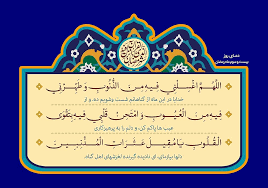 دعای روز
بیست و سوم ماه رمضان
اللهم اغسلنی فیه من الذنوب و طهرنی
خدایا در این ماه از گناهانم شست وشویم ده، و از
فیه من العیوب و امتحن قلبی فیه بتقوی
عیب ها پاکم کن، و دلم را به پرهیزکاری
القلوب یا مقیل عثرات المذنبین
دلها بیازمای، ای نادیده گیرنده لغزشهای اهل گناه